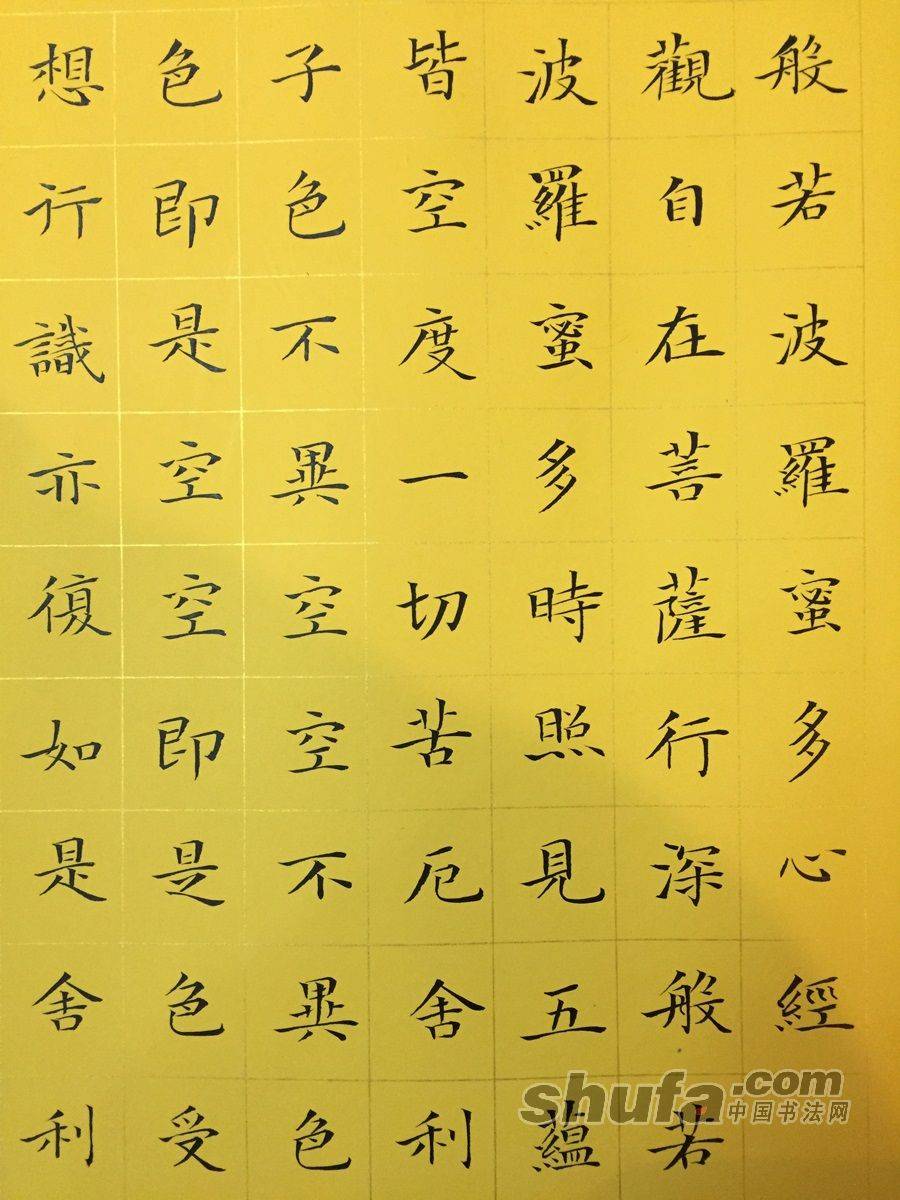 般若波羅蜜多心經
觀自在菩薩行深般若
波羅蜜多時照見五蘊
皆空度一切苦厄舍利
子色不異空空不異色
色即是空空即是色受
想行識亦復如是舍利
shufa.com
中国书法网